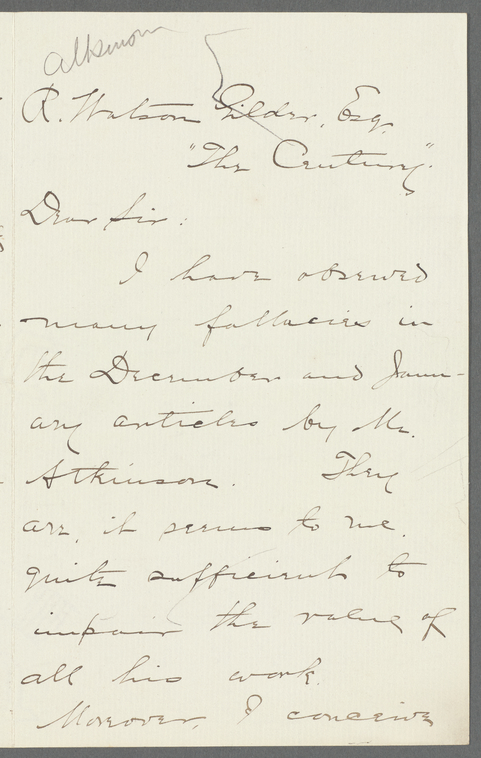 Atkinson
R. Watson Gilder, Esq.
"The Century".
Dear Sir:
I have observed
many fallacies in
the December and Janu-
ary articles by Mr.
Atkinson. They
are, it seems to me,
quite sufficient to
impair the value of
all his work.
Moreover, I conceive